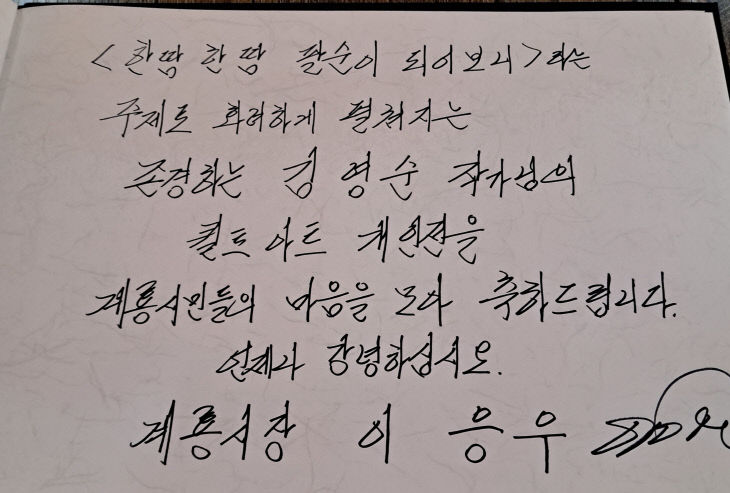 <한땀 한땀 팔순이 되어보니>라는
주제로 화려하게 펼쳐지는
존경하는 김영순 작가님의
퀼트아트 개인전을
계룡시민들의 마음을 모아 축하드립니다.
언제나 강녕하십시오.
계룡시장 이응우